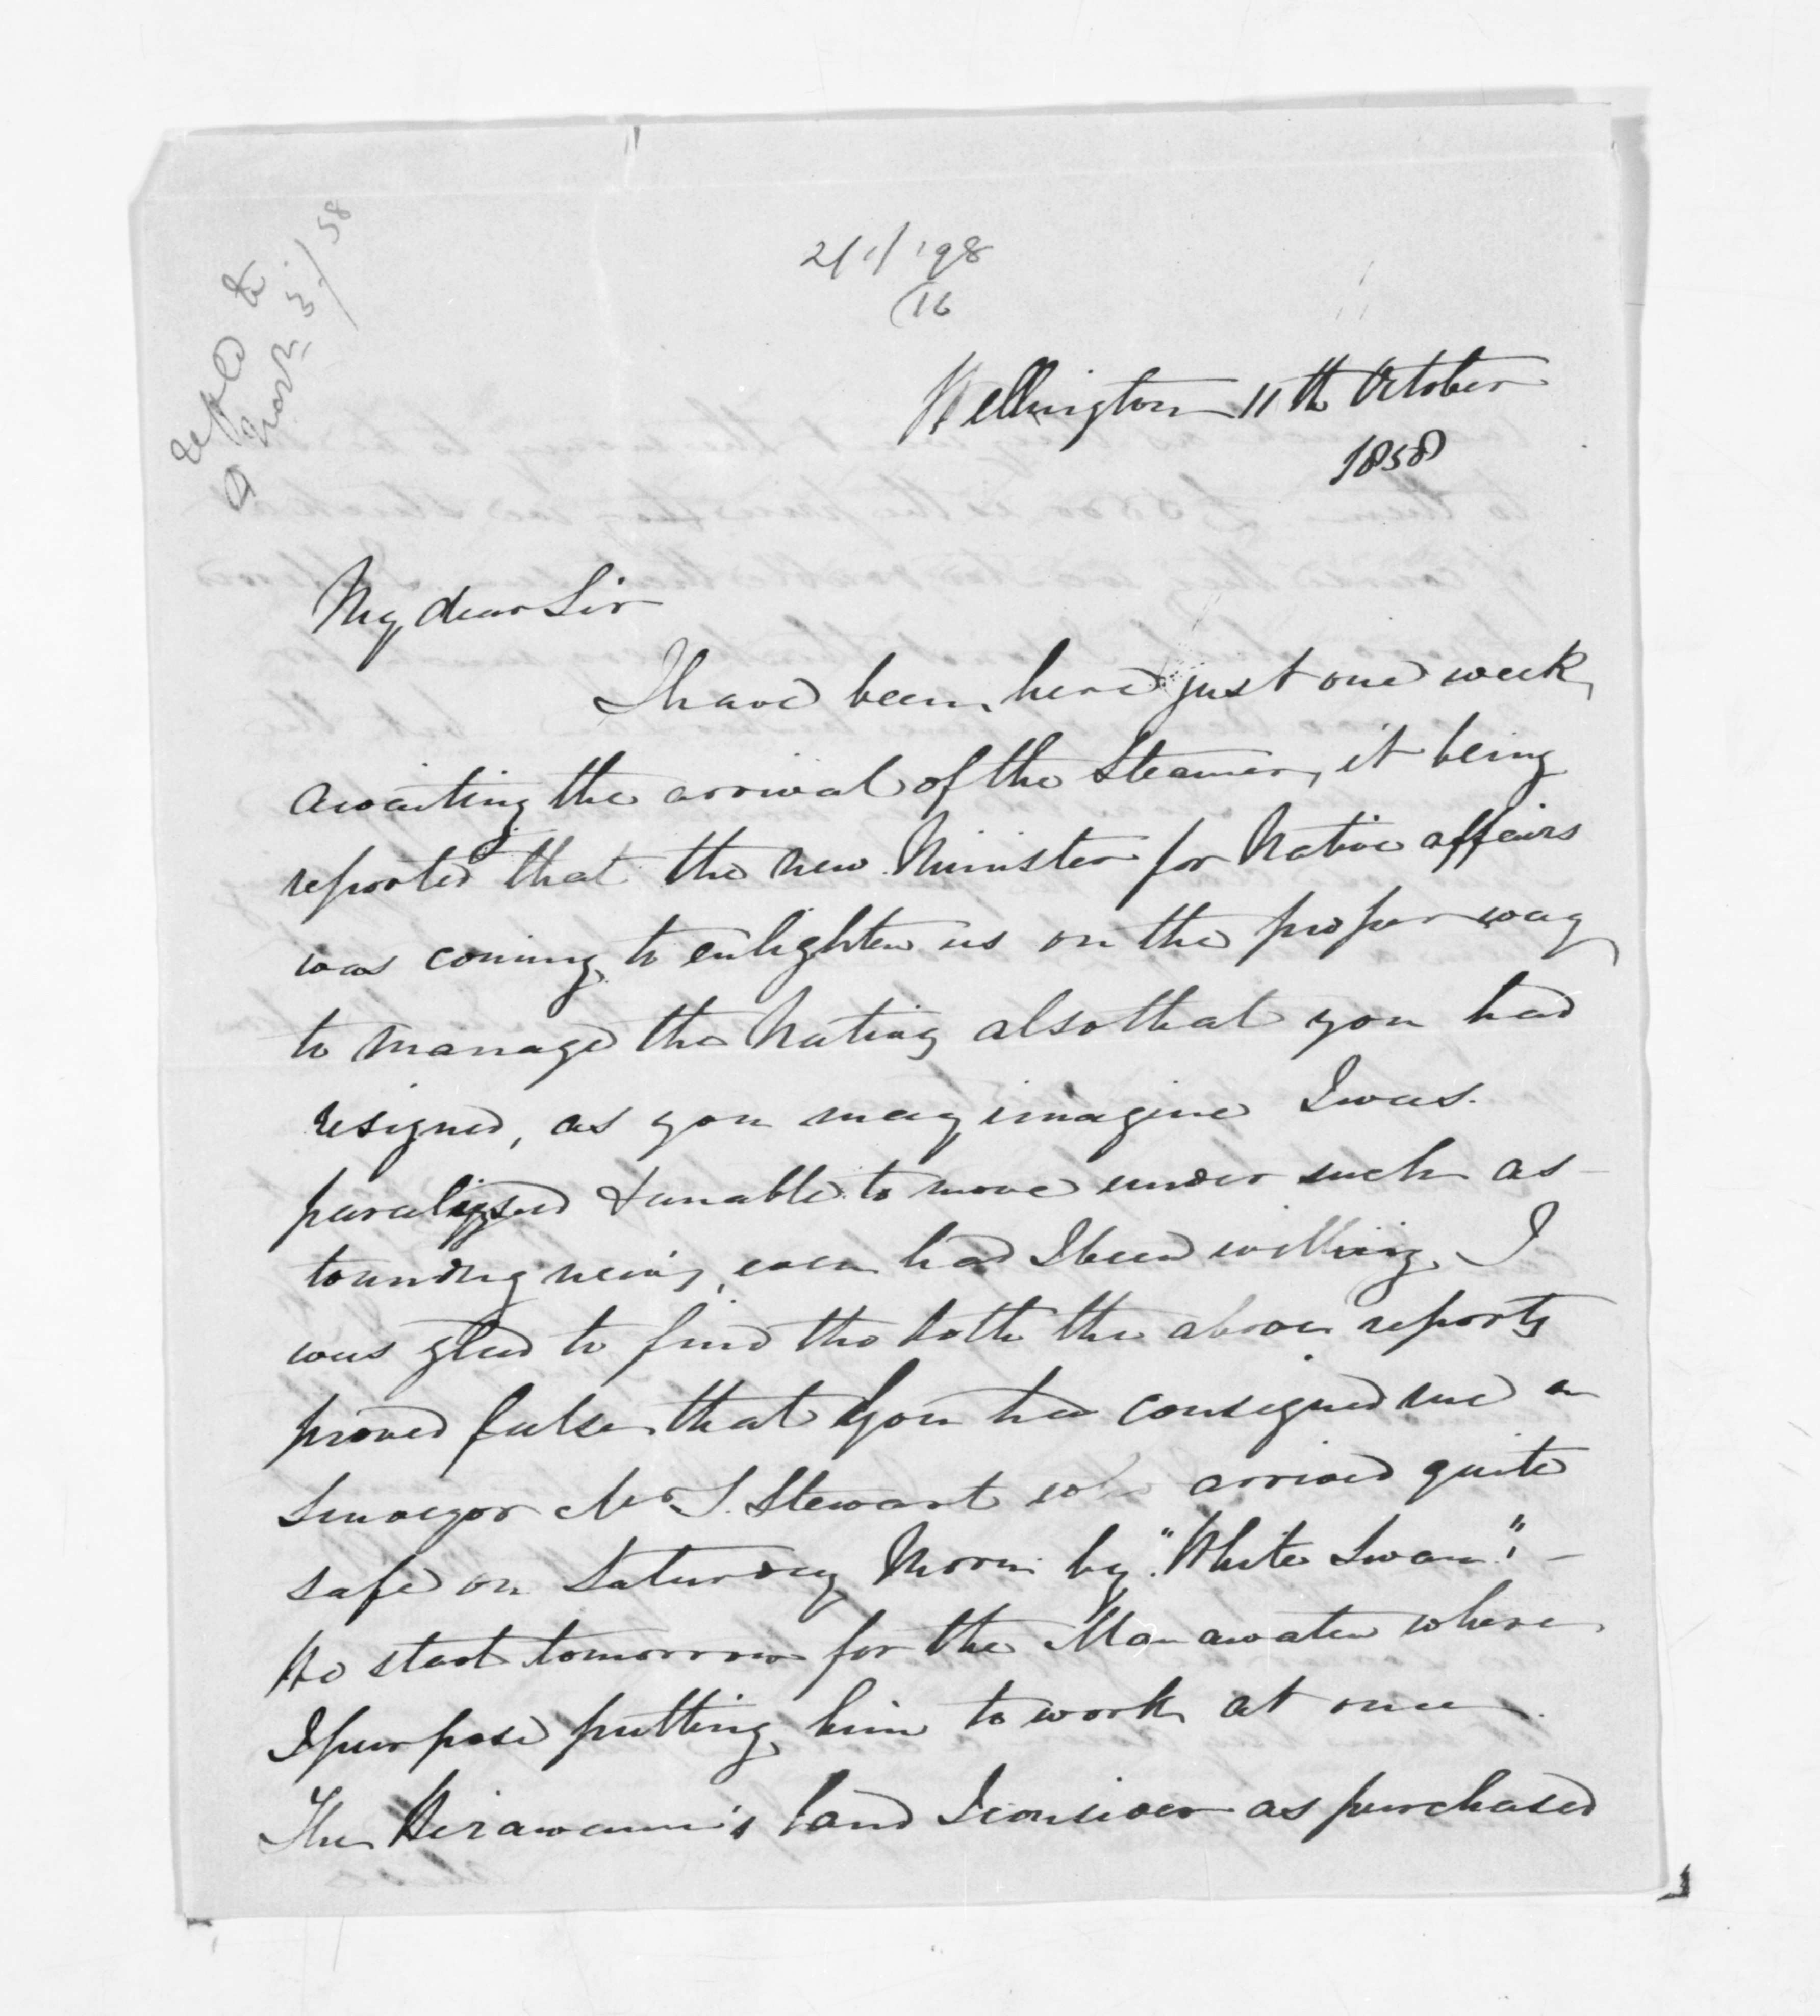 2/1/198
/16
repld to
Novr 3./58
Wellington 11th October
1858
My dear Sir
I have been here just one week
awaiting the arrival of the Steamer, it being
reported that the new Minister for Native affairs
was coming to enlighten us on the proper way
to manage the Natives also that you had
resigned, as you may imagine I was
paralyzed & unable to move under such as
tounding news, even had I been willing. I
was glad to find tho both the above reports
proved false that you had consigned me a
Surveyor Mr J. Stewart who arrived quite
safe on Saturday Morn by "White Swan". -
We start tomorrow for the Manawatu where
I purpose putting him to work at once.
The Hirawanu's land I consider as purchased